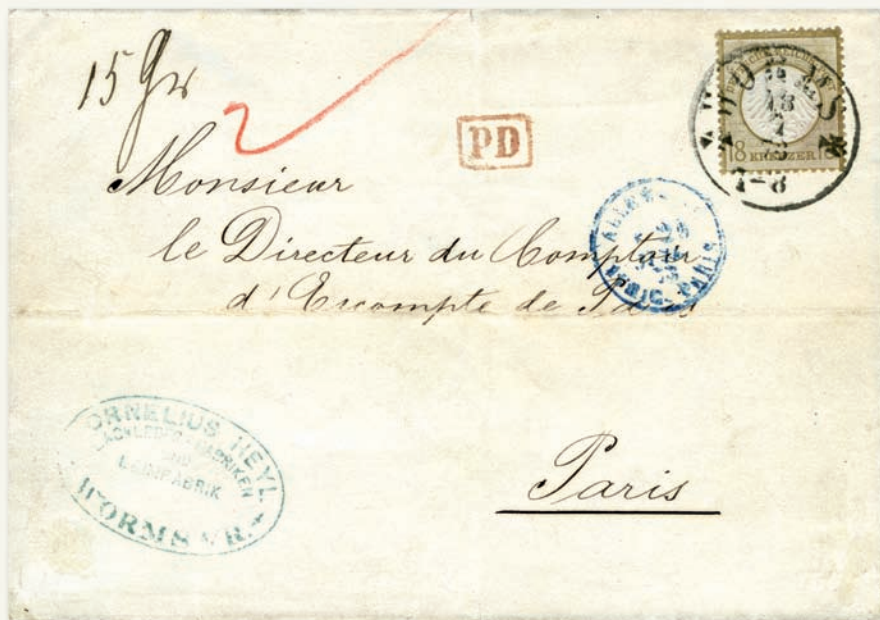 15 Gr
2
PD
18 KREUZER 18
WORMS
18
7
7-8
Monsieur
le Directeur du Comptoir
d'Escompte de Paris
PARIS
CORNELIUS HEYL
LACKLEDER-FABRIKEN
UND
LEIMFABRIK
WORMS a/R.
Paris